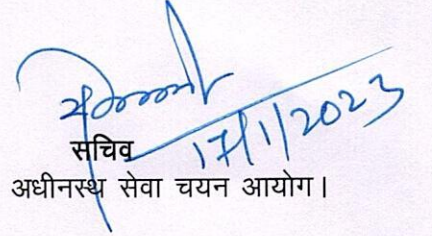 17/1/2023
सचिव
अधीनस्थ सेवा चयन आयोग।